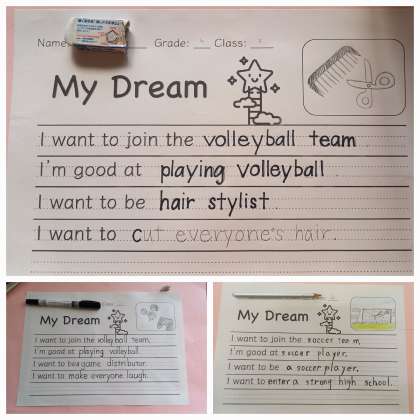 Name: Grade: Class:
My Dream
I want to join the volleyball team.
I'm good at playing volleyball.
I want to be hair stylist.
I want to cut everyone's hair.
My Dream
I want to join the volleyball team.
I'm good at playing volleyball.
I want to be game distributor.
I want to make everyone laugh.
My Dream
I want to join the soccer team.
I'm good at soccer player.
I want to be a soccer player.
I want to enter a strong high school.